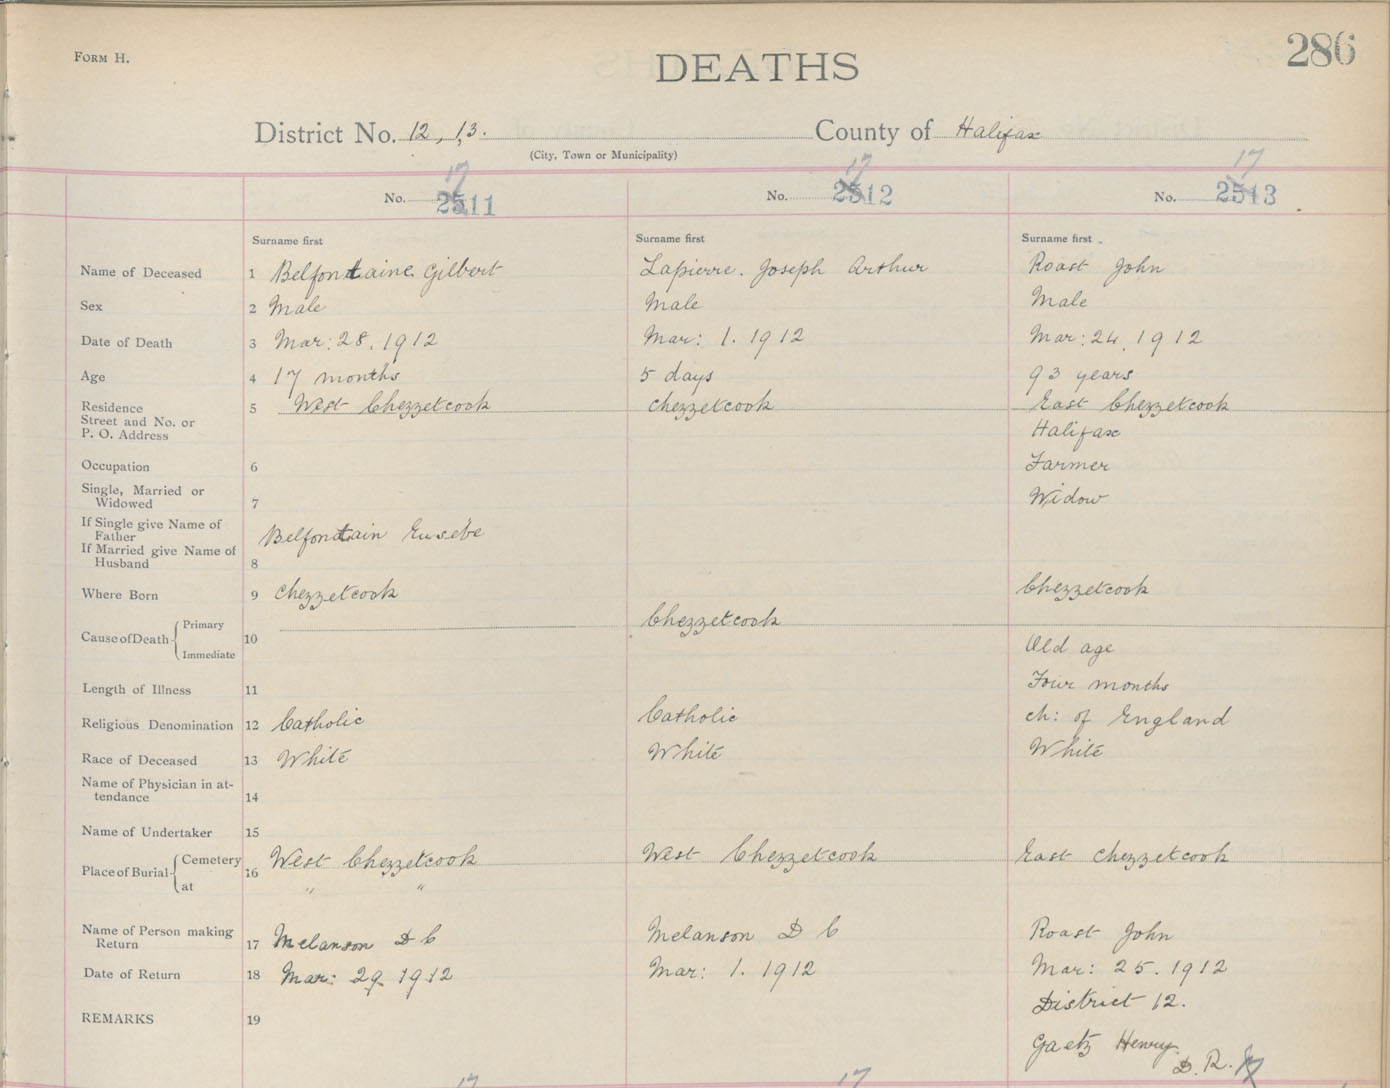 FORM H.
DEATHS
286
District No. 12, 13. County of Halifax
(City, Town or Municipality)
17 17 17
No. 2511 No. 2512 No. 2513
Surname first Surname first Surname first
Name of Deceased 1 Belfontaine Gilbert Lapierre. Joseph Arthur Roast John
Sex 2 Male Male Male
Date of Death 3 Mar: 28. 1912 Mar: 1. 1912 Mar: 24. 1912
Age 4 17 months 5 days 93 years
Residence 5 West Chezzetcook Chezzetcook East Chezzetcook
Street and No. or
P. O. Address Halifax
Occupation 6 Farmer
Single, Married or
Widowed 7 Widow
If Single give Name of
Father Belfontain Eusebe
If Married give Name of
Husband 8
Where Born 9 Chezzetcook Chezzetcook
Chezzetcook
Cause of Death Primary
10 Old age
Immediate
Length of Illness 11 Four months
Religious Denomination 12 Catholic Catholic Ch: of England
Race of Deceased 13 White White White
Name of Physician in at-
tendance 14
Name of Undertaker 15
Place of Burial Cemetery 16 West Chezzetcook West Chezzetcook East Chezzetcook
at " "
Name of Person making
Return 17 Melanson D C Melanson D C Roast John
Date of Return 18 Mar: 29. 1912 Mar: 1. 1912 Mar: 25. 1912
District 12.
REMARKS 19
Gaetz Henry
D. R.
17 17